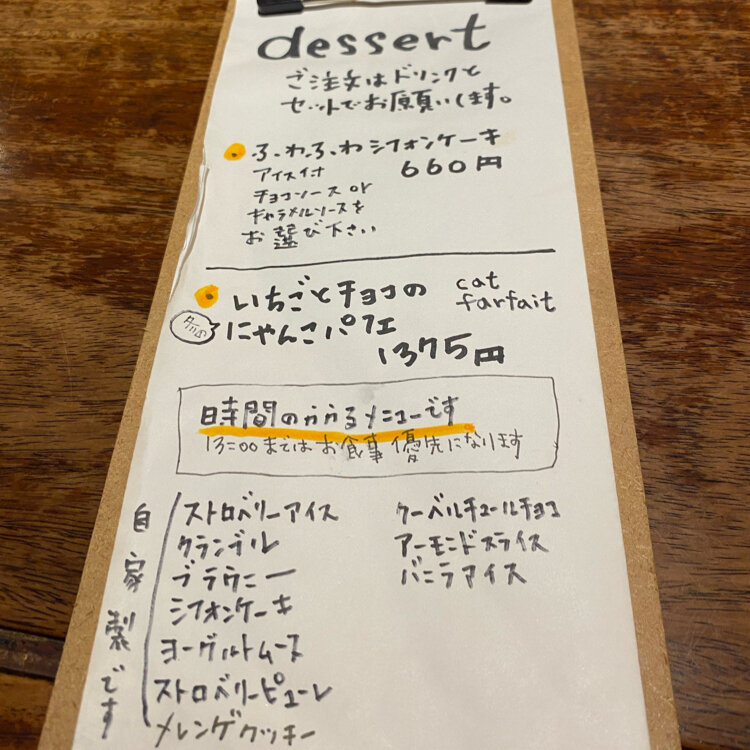 dessert
ご注文はドリンクと
セットでお願いします。
ふわふわシフォンケーキ
アイス付 660円
チョコソース or
キャラメルソースを
お選び下さい
いちごとチョコの cat
にゃんこパフェ farfait
1375円
時間のかかるメニューです
13:00まではお食事優先になります
自家製です
ストロベリーアイス
クランブル
ブラウニー
シフォンケーキ
ヨーグルトムース
ストロベリーピューレ
メレンゲクッキー
クーベルチュールチョコ
アーモンドスライス
バニラアイス